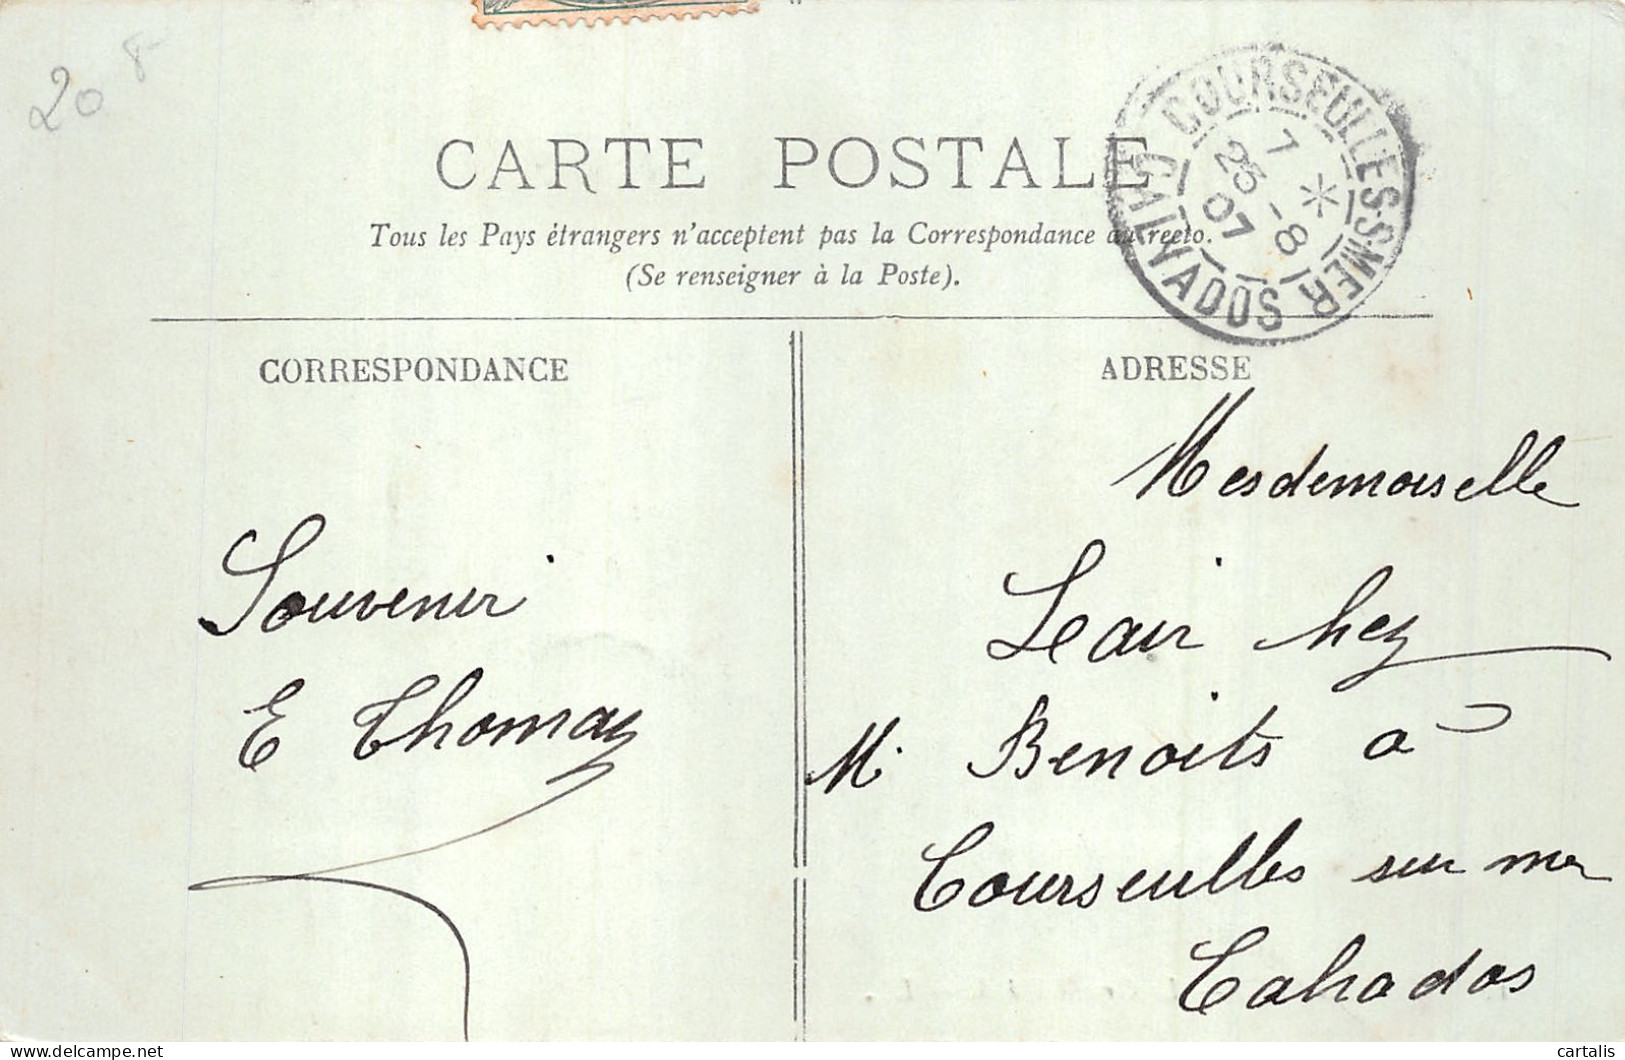 20 8
CARTE POSTALE
Tous les Pays étrangers n'acceptent pas la Correspondance au recto.
(Se renseigner à la Poste).
COURSEULLES-S-MER
7
25 -8
07
CALVADOS
CORRESPONDANCE
Souvenir
E Thomas
ADRESSE
Mesdemoiselle
Leair hez
M. Benoits à
Courseulles sur mer
Calvados
cartalis